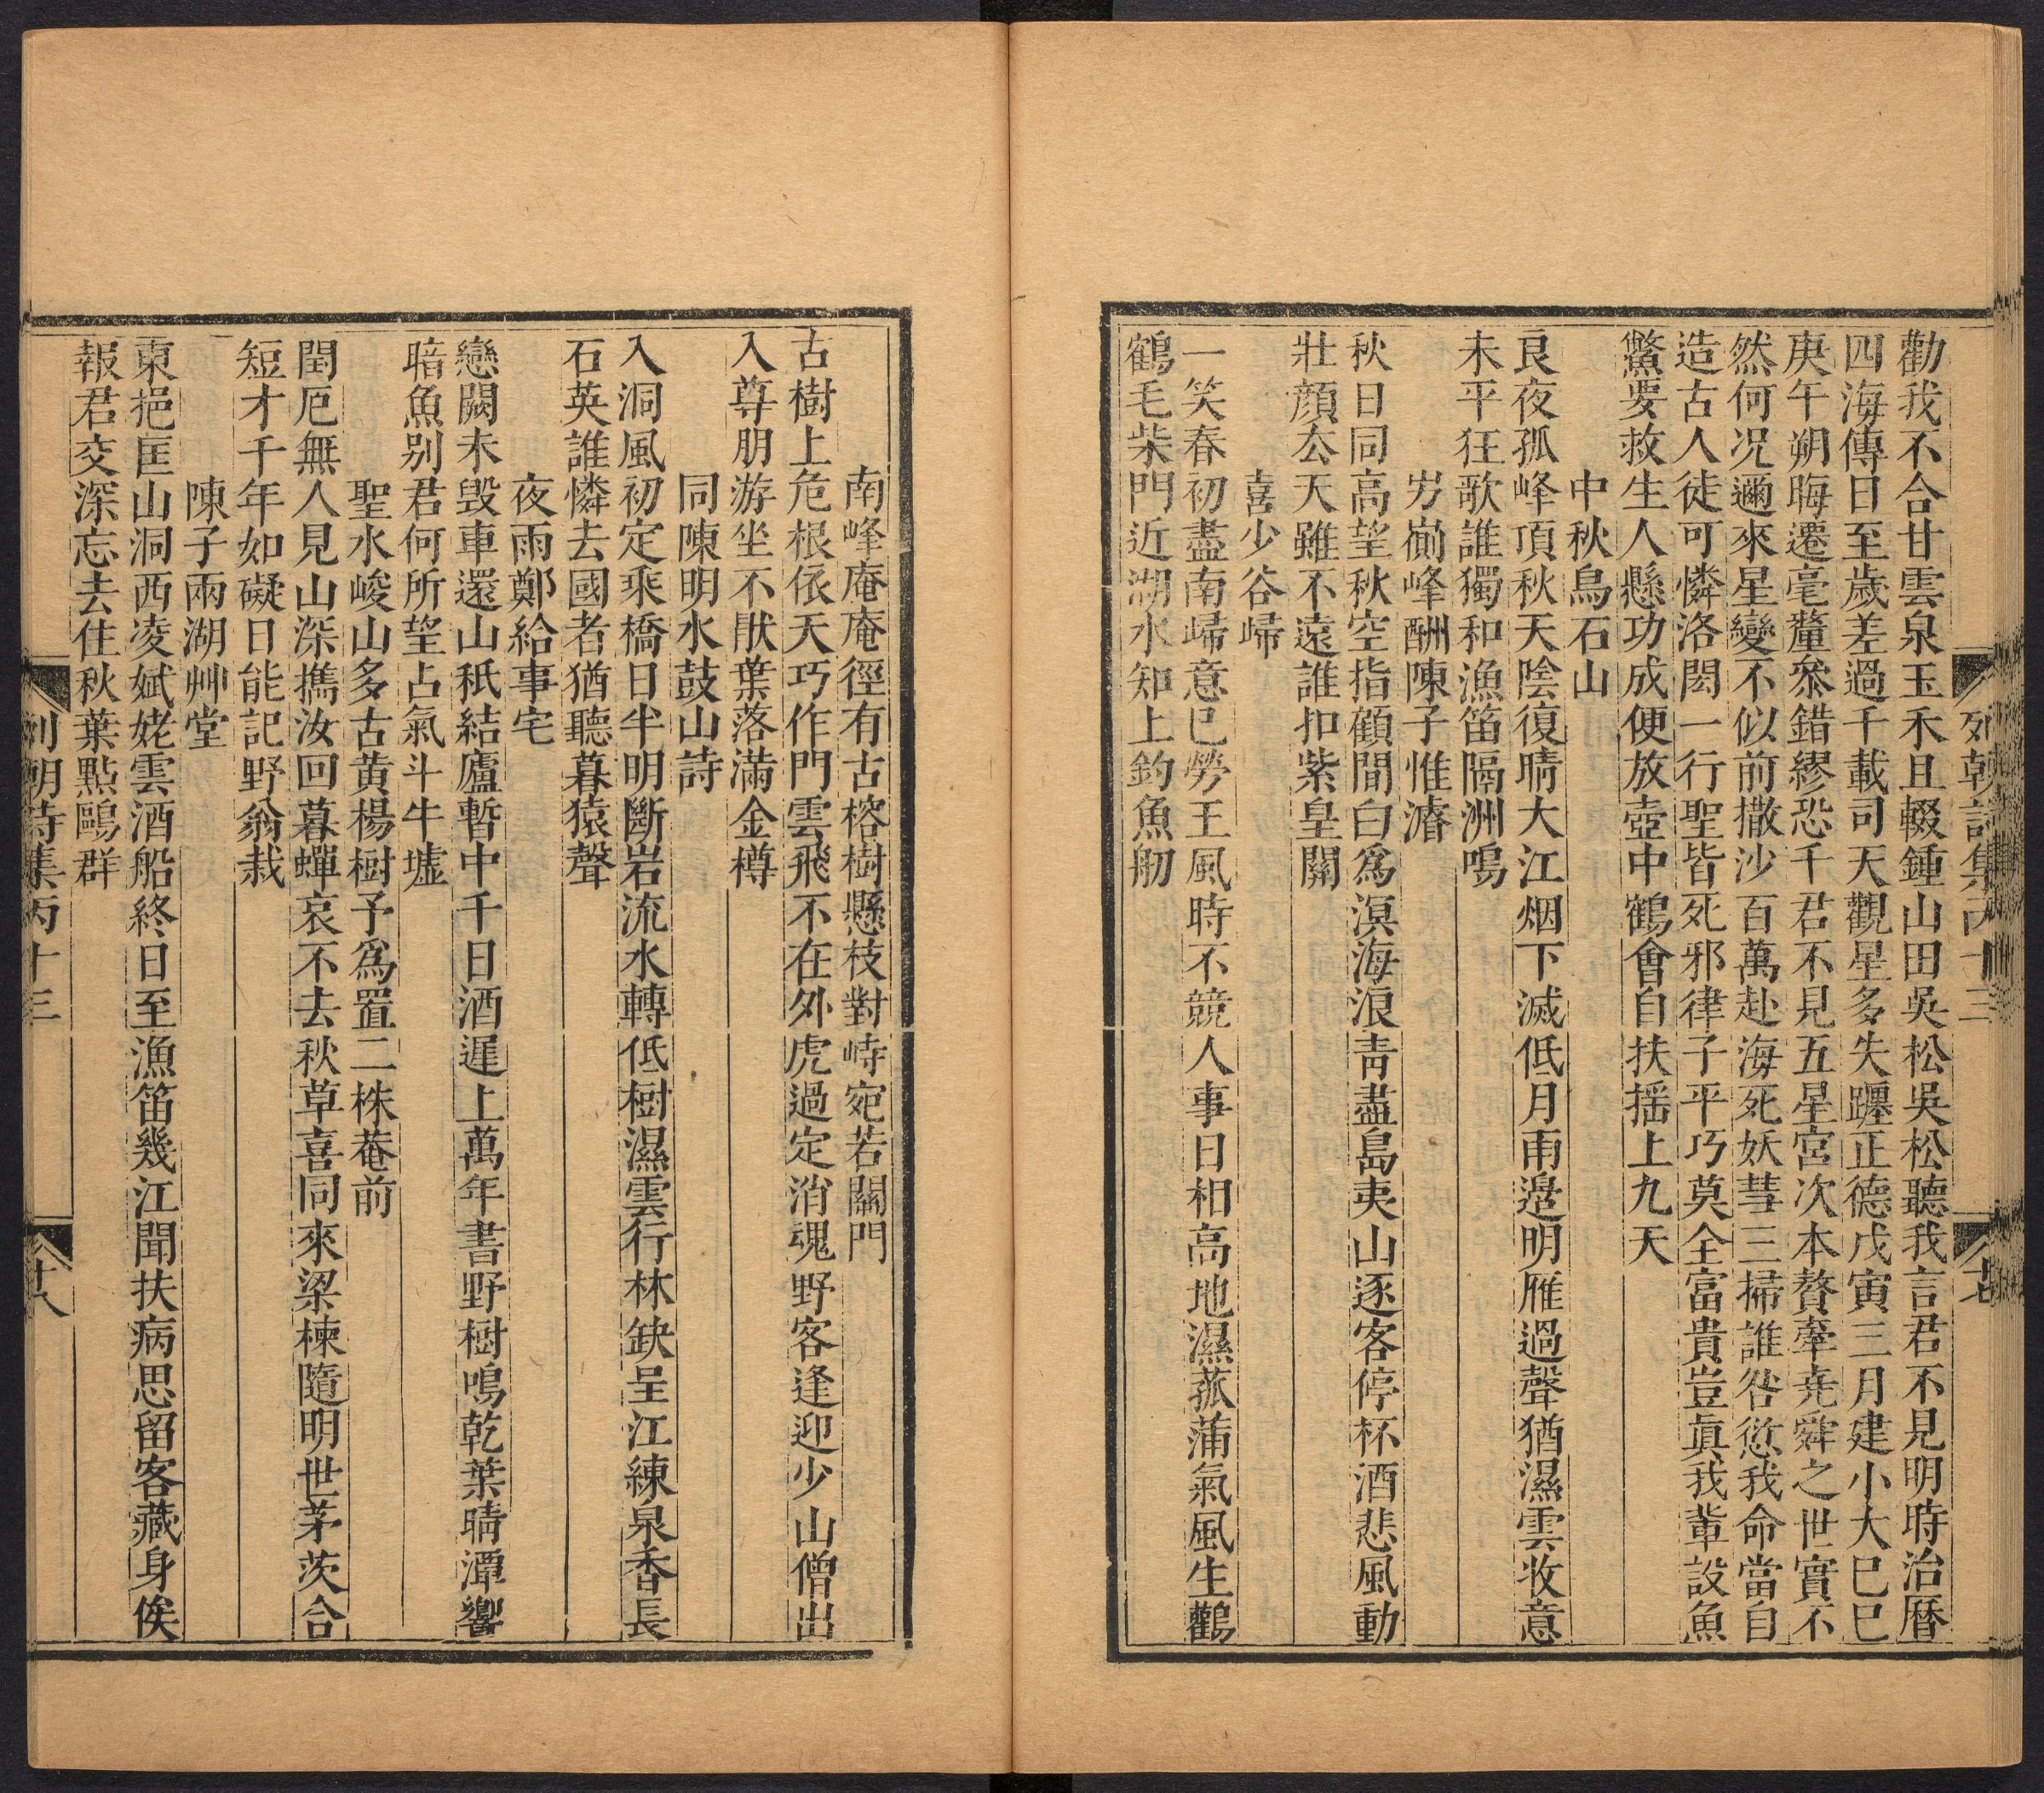 列朝詩集丙十三
勸我不合甘雲泉玉禾且輟鍾山田吳松吳松聽我言君不見明時治曆
四海傳日至歲差過千載司天觀星多失躔正德戊寅三月建小大巳巳
庚午朔晦遷毫釐叅錯繆恐千君不見五星宮次本贅牽堯舜之世實不
然何况邇來星變不似前撒沙百萬赴海死妖彗三掃誰咎愆我命當自
造古人徒可憐洛閎一行聖皆死邪律子平巧莫全富貴豈眞我輩設魚
鱉要救生人懸功成便放壺中鶴會自扶揺上九天
中秋烏石山
良夜孤峰頂秋天陰復晴大江烟下滅低月雨邉明雁過聲猶濕雲收意
未平狂歌誰獨和漁笛隔洲鳴
屴崱峰酬陳子惟濬
秋日同高望秋空指顧間白爲溟海浪靑盡島夷山逐客停杯酒悲風動
壯顔去天雖不遠誰扣紫皇關
喜少谷歸
一笑春初盡南歸意巳勞王風時不競人事日相高地濕菰蒲氣風生鸛
鶴毛柴門近湖水知上釣魚舠
南峰庵庵徑有古榕樹懸枝對峙宛若關門
古樹上危根依天巧作門雲飛不在外虎過定消魂野客逢迎少山僧出
入尊朋游坐不猒葉落滿金樽
同陳明水鼓山詩
入洞風初定乘橋日半明斷岩流水轉低樹濕雲行林缺呈江練泉香長
石英誰憐去國者猶聽暮猿聲
夜雨鄭給事宅
戀闕未毁車還山秖結廬暫中千日酒遲上萬年書野樹鳴乾葉晴潭響
暗魚别君何所望占氣斗牛墟
聖水峻山多古黄楊樹予爲置二株菴前
閏厄無人見山深攜汝回暮蟬哀不去秋草喜同來梁棟隨明世茅茨合
短才千年如礙日能記野翁栽
陳子兩湖艸堂
東挹匡山洞西凌斌姥雲酒船終日至漁笛幾江聞扶病思留客藏身俟
報君交深忘去住秋葉點鷗群
列朝詩集丙十三
十八